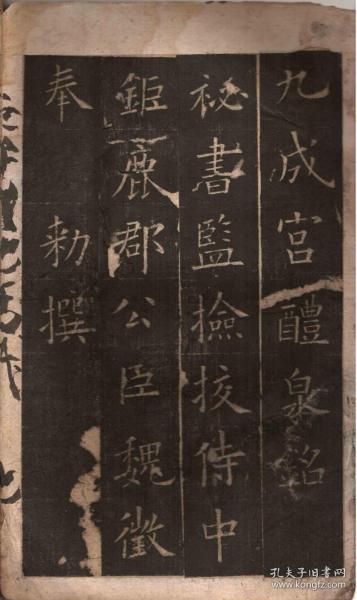 九成宮醴泉銘
祕書監撿挍侍中
鉅鹿郡公臣魏徵
奉　敕撰
孔夫子旧书网
www.kongfz.com